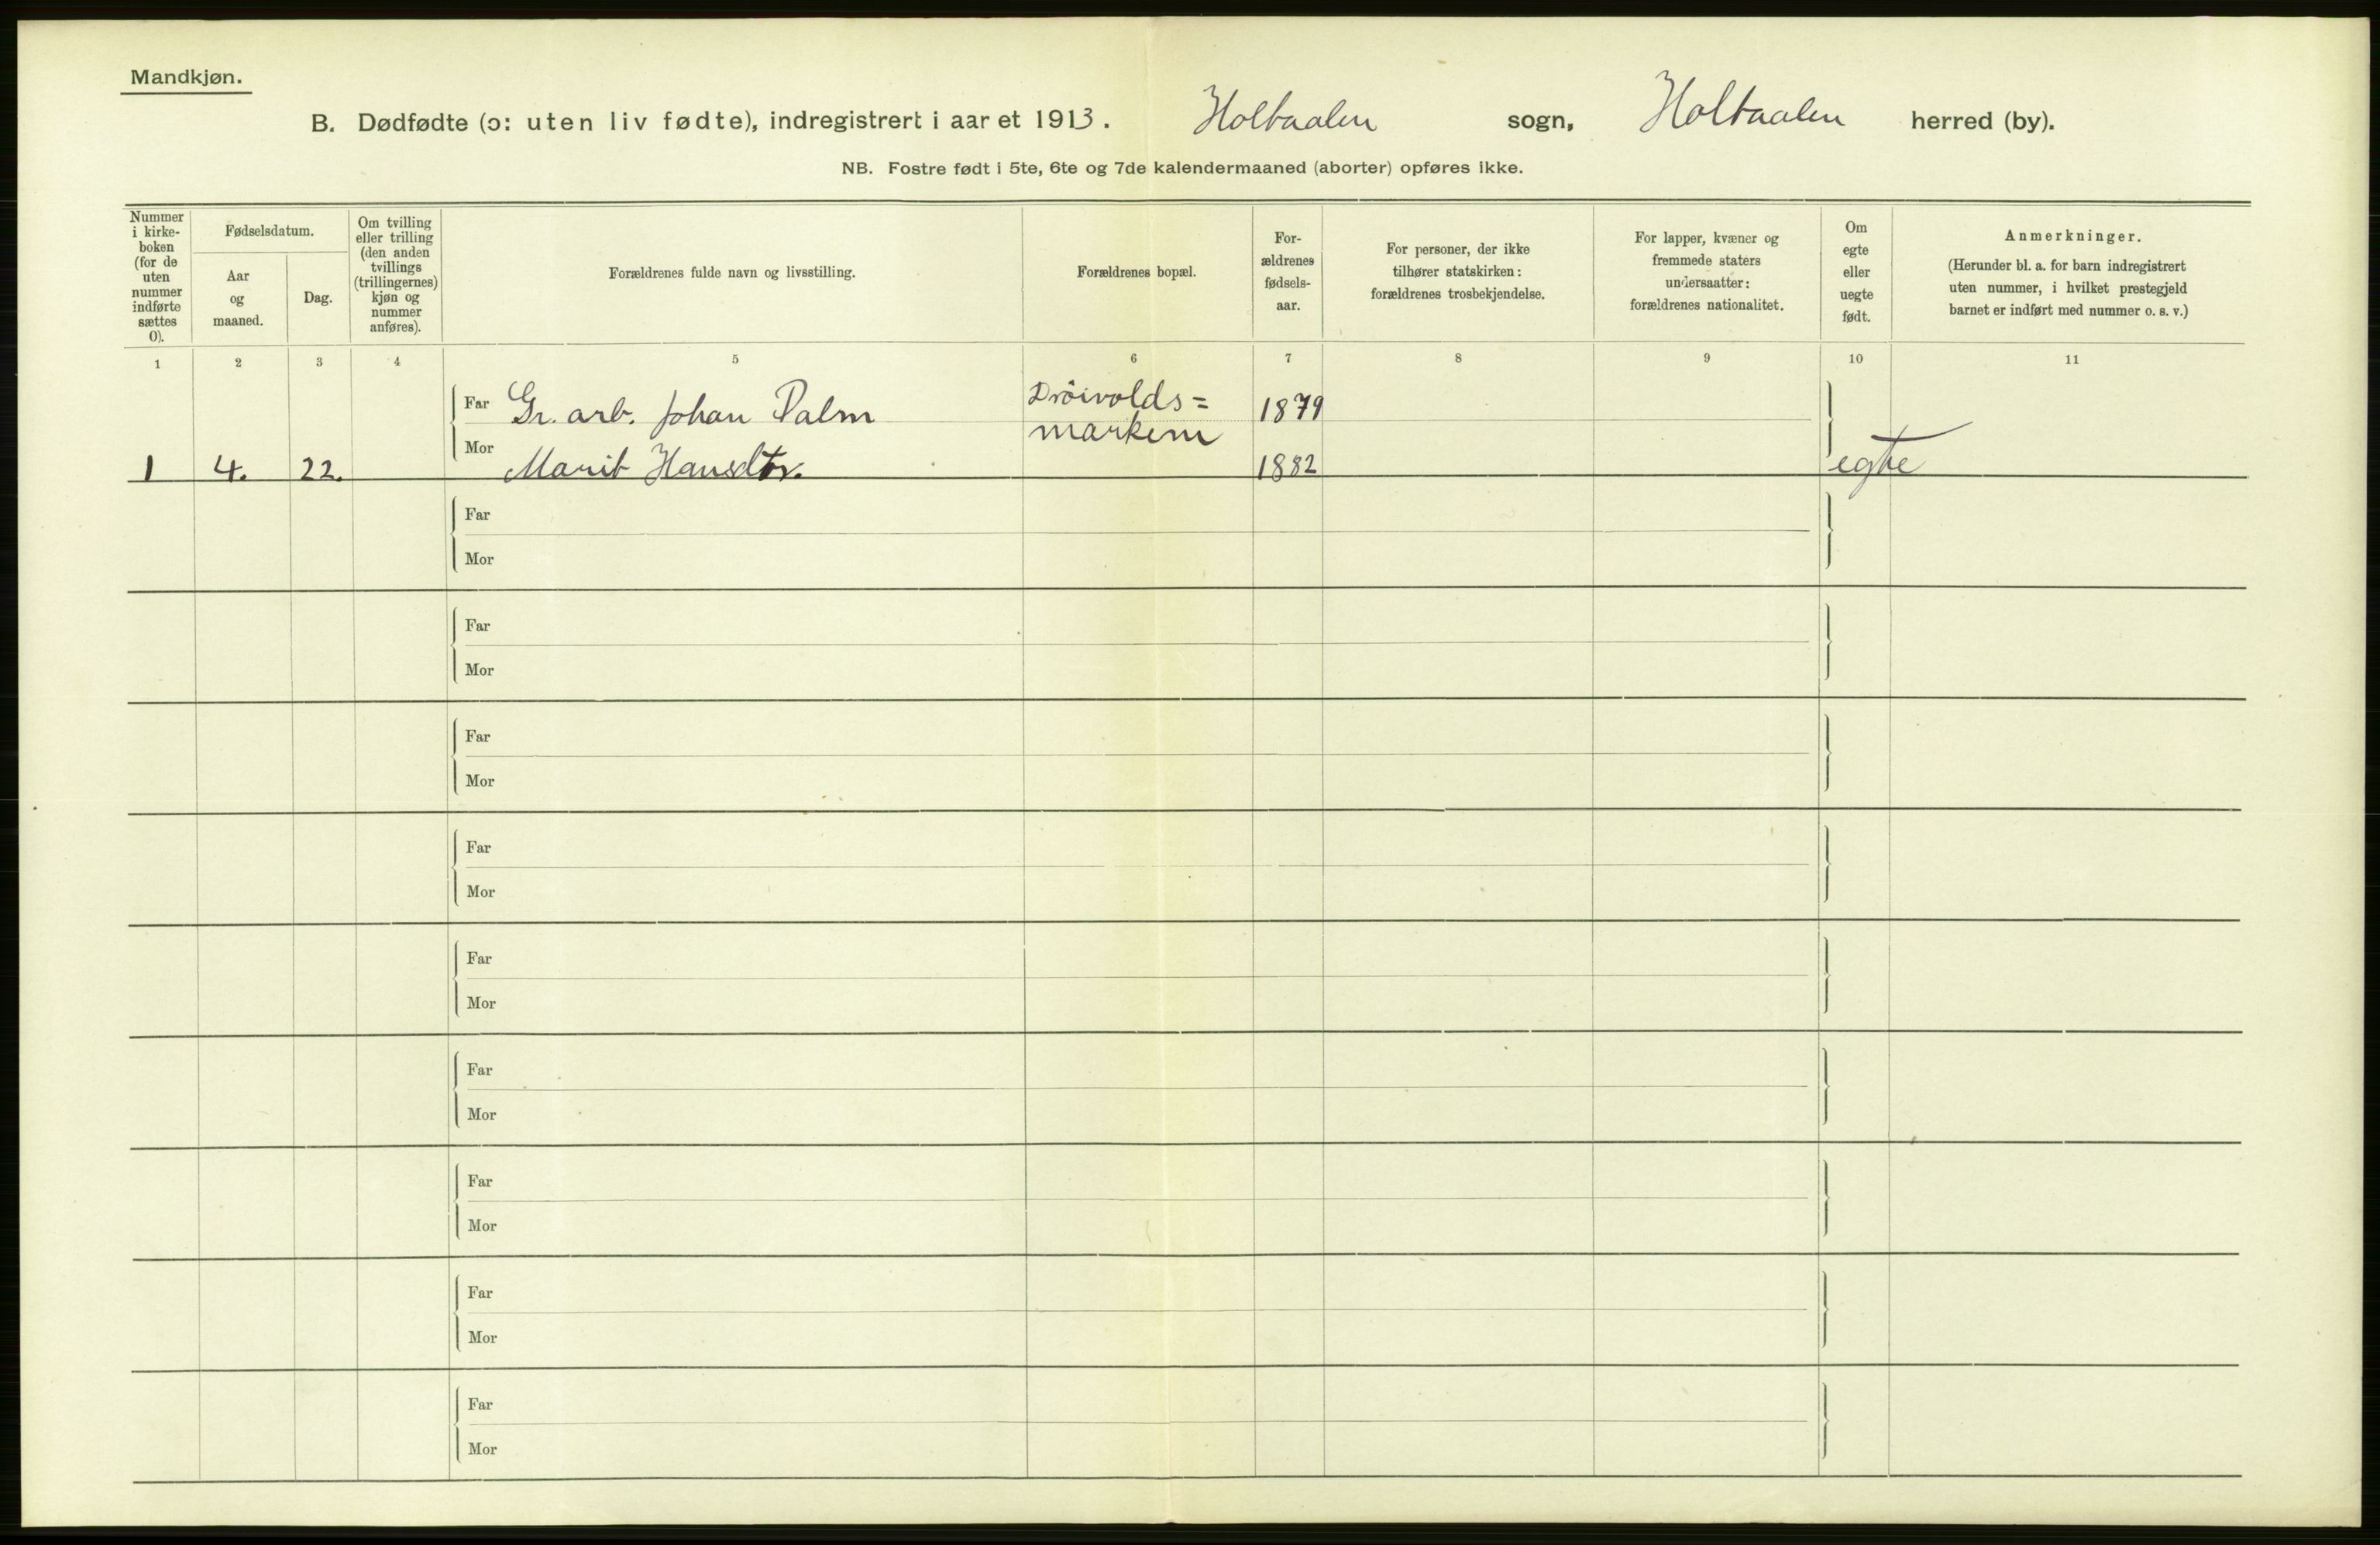 Mandkjøn.
B. Dødfødte (ɔ: uten liv fødte), indregistrert i aaret 1913. Holtaalen sogn, Holtaalen herred (by).
NB. Fostre født i 5te, 6te og 7de kalendermaaned (aborter) opføres ikke.
Nummer
i kirke-
boken
(for de
uten
nummer
indførte
sættes
0).
Fødselsdatum.
Aar
og
maaned.
Dag.
Om tvilling
eller trilling
(den anden
tvillings
(trillingernes)
kjøn og
nummer
anføres).
Forældrenes fulde navn og livsstilling.
Forældrenes bopæl.
For-
ældrenes
fødsels-
aar.
For personer, der ikke
tilhører statskirken:
forældrenes trosbekjendelse.
For lapper, kvæner og
fremmede staters
undersaatter:
forældrenes nationalitet.
Om
egte
eller
uegte
født.
Anmerkninger.
(Herunder bl. a. for barn indregistrert
uten nummer, i hvilket prestegjeld
barnet er indført med nummer o. s. v.)
1 2 3 4 5 6 7 8 9 10 11
Far Gr. arb. Johan Palm Dröivolds= 1879
markern
1 4. 22. Mor Marit Hansdtr. 1882 egte
Far
Mor
Far
Mor
Far
Mor
Far
Mor
Far
Mor
Far
Mor
Far
Mor
Far
Mor
Far
Mor